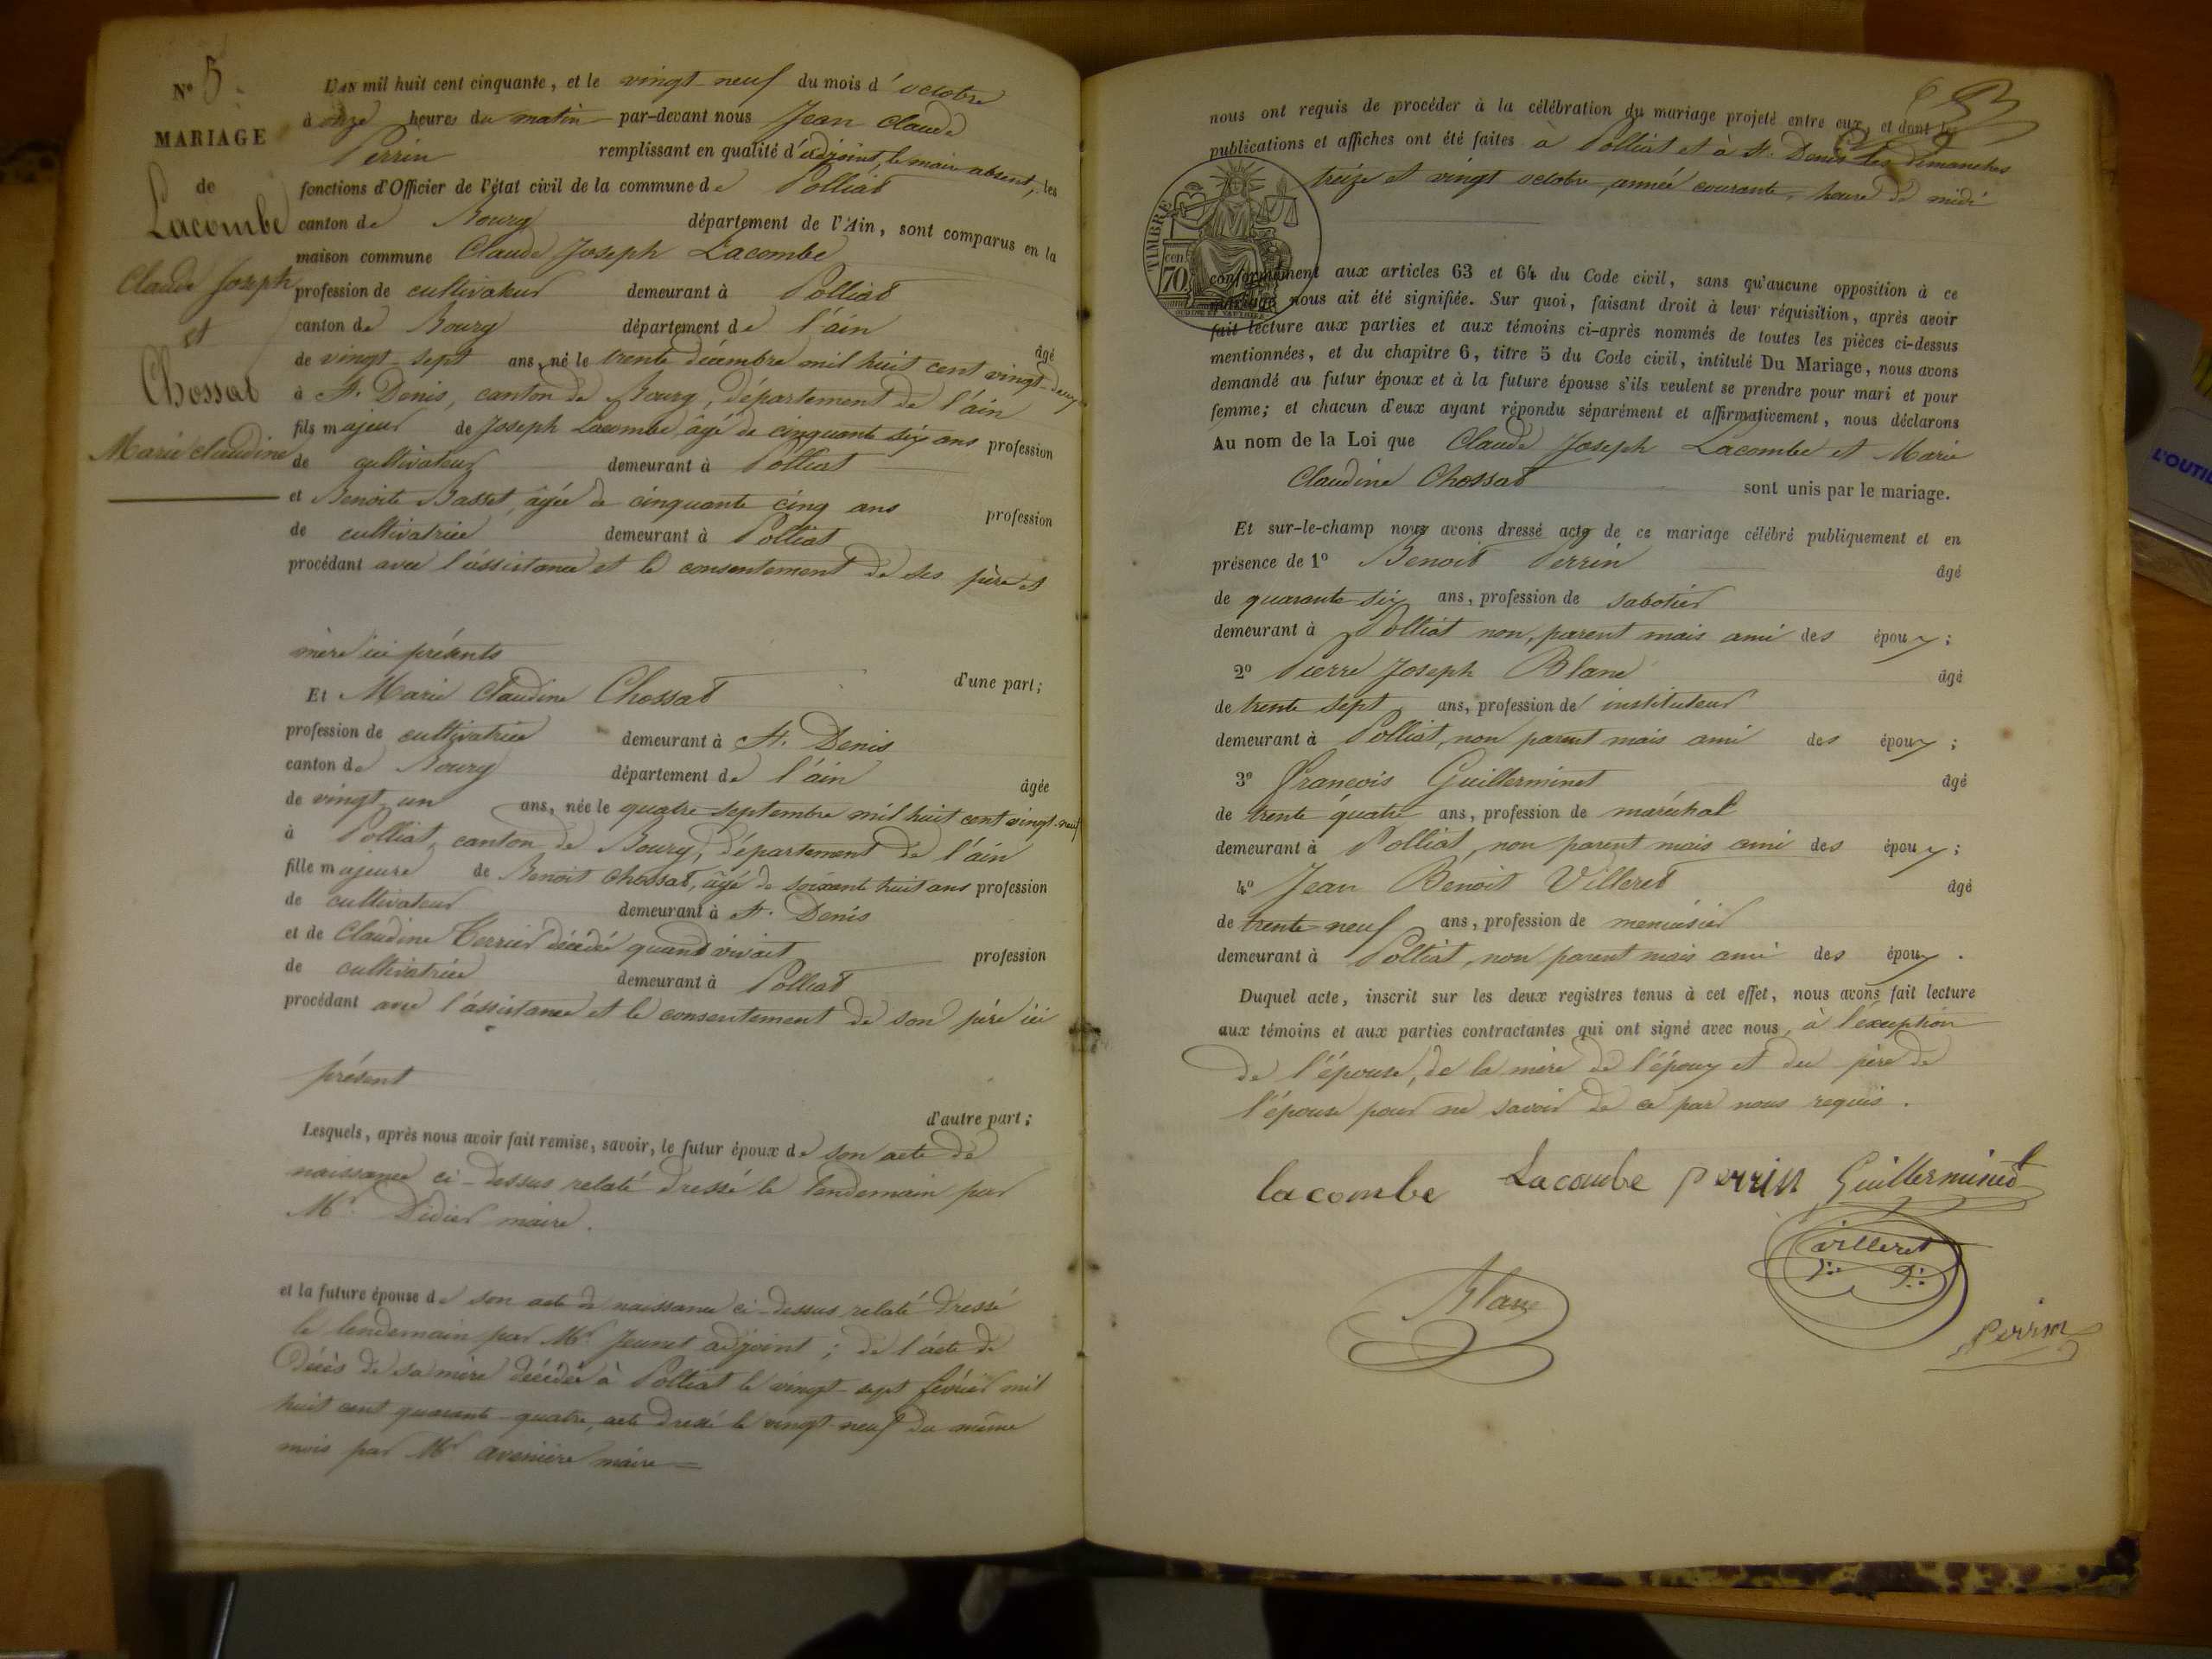 N° 5.
MARIAGE
de
Lacombe
Claude Joseph
et
Chossat
Marie Claudine
L'AN mil huit cent cinquante, et le vingt neuf du mois d'octobre
à onze heures du matin par-devant nous Jean Claude
Perrin remplissant en qualité d'adjoint, le maire absent, les
fonctions d'Officier de l'état civil de la commune de Polliat
canton de Bourg département de l'Ain, sont comparus en la
maison commune Claude Joseph Lacombe
profession de cultivateur demeurant à Polliat
canton de Bourg département de l'ain âgé
de vingt-sept ans, né le trente décembre mil huit cent vingt-deux
à St. Denis, canton de Bourg, département de l'ain
fils majeur de Joseph Lacombe âgé de cinquante six ans profession
de cultivateur demeurant à Polliat
et Benoite Basset, âgée de cinquante cinq ans profession
de cultivatrice demeurant à Polliat
procédant avec l'assistance et le consentement de ses père et
mère ici présents
d'une part;
Et Marie Claudine Chossat
profession de cultivatrice demeurant à St. Denis
canton de Bourg département de l'ain âgée
de vingt un ans, née le quatre septembre mil huit cent vingt-neuf
à Polliat, canton de Bourg, département de l'ain
fille majeure de Benoit Chossat, âgé de soixante huit ans profession
de cultivateur demeurant à St. Denis
et de Claudine Terrier décédée quand vivait profession
de cultivatrice demeurant à Polliat
procédant avec l'assistance et le consentement de son père ici
présent
d'autre part;
Lesquels, après nous avoir fait remise, savoir, le futur époux de son acte de
naissance ci-dessus relaté dressé le lendemain par
Mr. Didier maire.
et la future épouse de son acte de naissance ci-dessus relaté dressé
le lendemain par Mr. Jeunet adjoint; de l'acte de
décès de sa mère décédée à Polliat le vingt-sept février mil
huit cent quarante-quatre, acte dressé le vingt-neuf du même
mois par Mr avenière maire
nous ont requis de procéder à la célébration du mariage projeté entre eux, et dont les
publications et affiches ont été faites à Polliat et à St. Denis les dimanches
treize et vingt octobre, année courante, heure de midi
TIMBRE
70 cent
conformément aux articles 63 et 64 du Code civil, sans qu'aucune opposition à ce
mariage nous ait été signifiée. Sur quoi, faisant droit à leur réquisition, après avoir
fait lecture aux parties et aux témoins ci-après nommés de toutes les pièces ci-dessus
mentionnées, et du chapitre 6, titre 5 du Code civil, intitulé Du Mariage, nous avons
demandé au futur époux et à la future épouse s'ils veulent se prendre pour mari et pour
femme; et chacun d'eux ayant répondu séparément et affirmativement, nous déclarons
Au nom de la Loi que Claude Joseph Lacombe et Marie
Claudine Chossat sont unis par le mariage.
Et sur-le-champ nous avons dressé acte de ce mariage célébré publiquement et en
présence de 1° Benoit Perrin âgé
de quarante six ans, profession de sabotier
demeurant à Polliat non, parent mais ami des époux;
2° Pierre Joseph Blanc âgé
de trente sept ans, profession de instituteur
demeurant à Polliat, non parent mais ami des époux;
3° François Guillerminet âgé
de trente quatre ans, profession de maréchal
demeurant à Polliat, non parent mais ami des époux;
4° Jean Benoit Villeret âgé
de trente-neuf ans, profession de menuisier
demeurant à Polliat, non parent mais ami des époux.
Duquel acte, inscrit sur les deux registres tenus à cet effet, nous avons fait lecture
aux témoins et aux parties contractantes qui ont signé avec nous, à l'exception
de l'épouse, de la mère de l'époux et du père de
l'épouse pour ne savoir de ce par nous requis.
lacombe Lacombe perrin Guillerminet
villeret
Blanc
Perrin
L'OUTIL